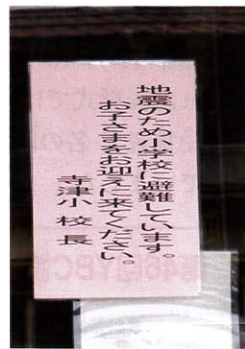 地震のため小学校に避難しています。
お子さまをお迎えに来てください。
寺津小校長